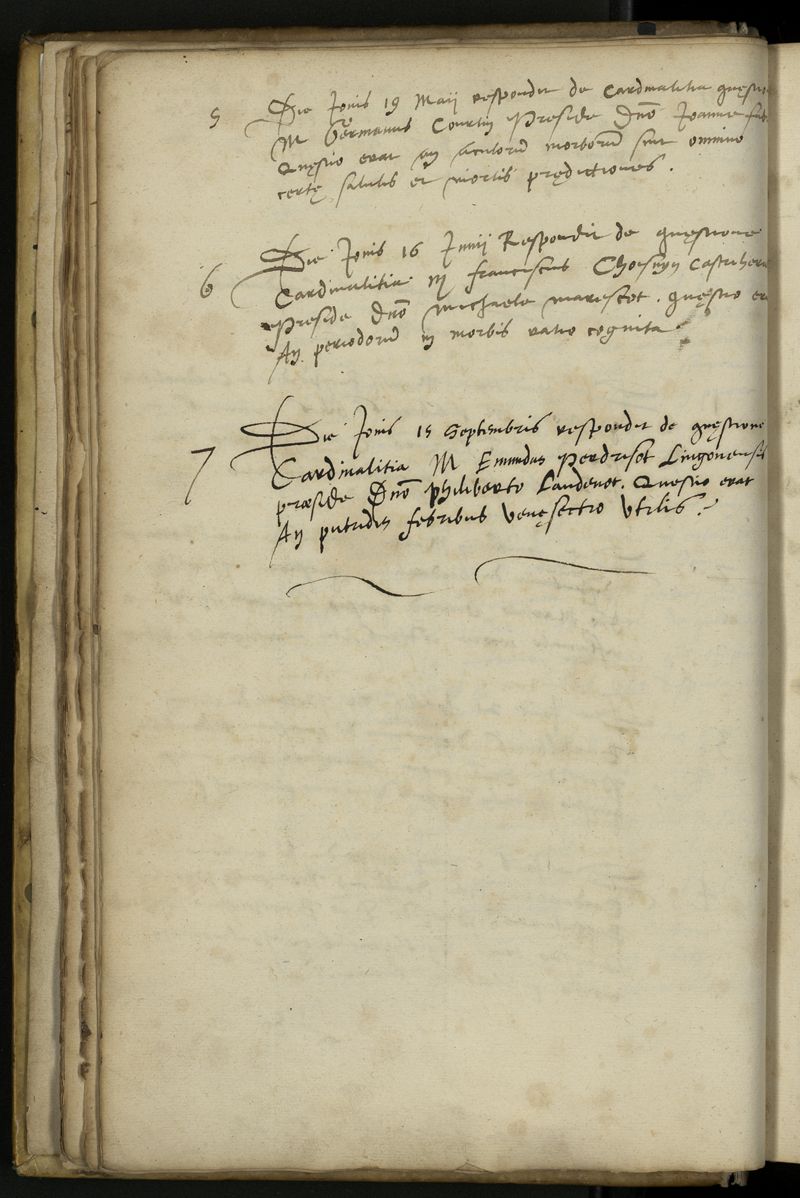 5 Die Jovis 19 Maii respondit de Cardinalitia quęstio
M Germanus Courtin Preside Dnō Joanne
Quęstio erat an acutorū morborū sint omnino
certę salutis et mortis prędictiones.
6 Die Jovis 16 Junij Respondit de quęstione
Cardinalitia M franciscus Choisnyn Castrihera
Preside Dnō michaele marescot. quęstio er
An periodorū in morbis ratio cognita
7 Die Jovis 15 Septembris respondit de quęstione
Cardinalitia M Emundus Perdrisot Lingonensis
præside Dnō Philiberto Laudenot. Quęstio erat
An putridis febribus venęsectio utilis?